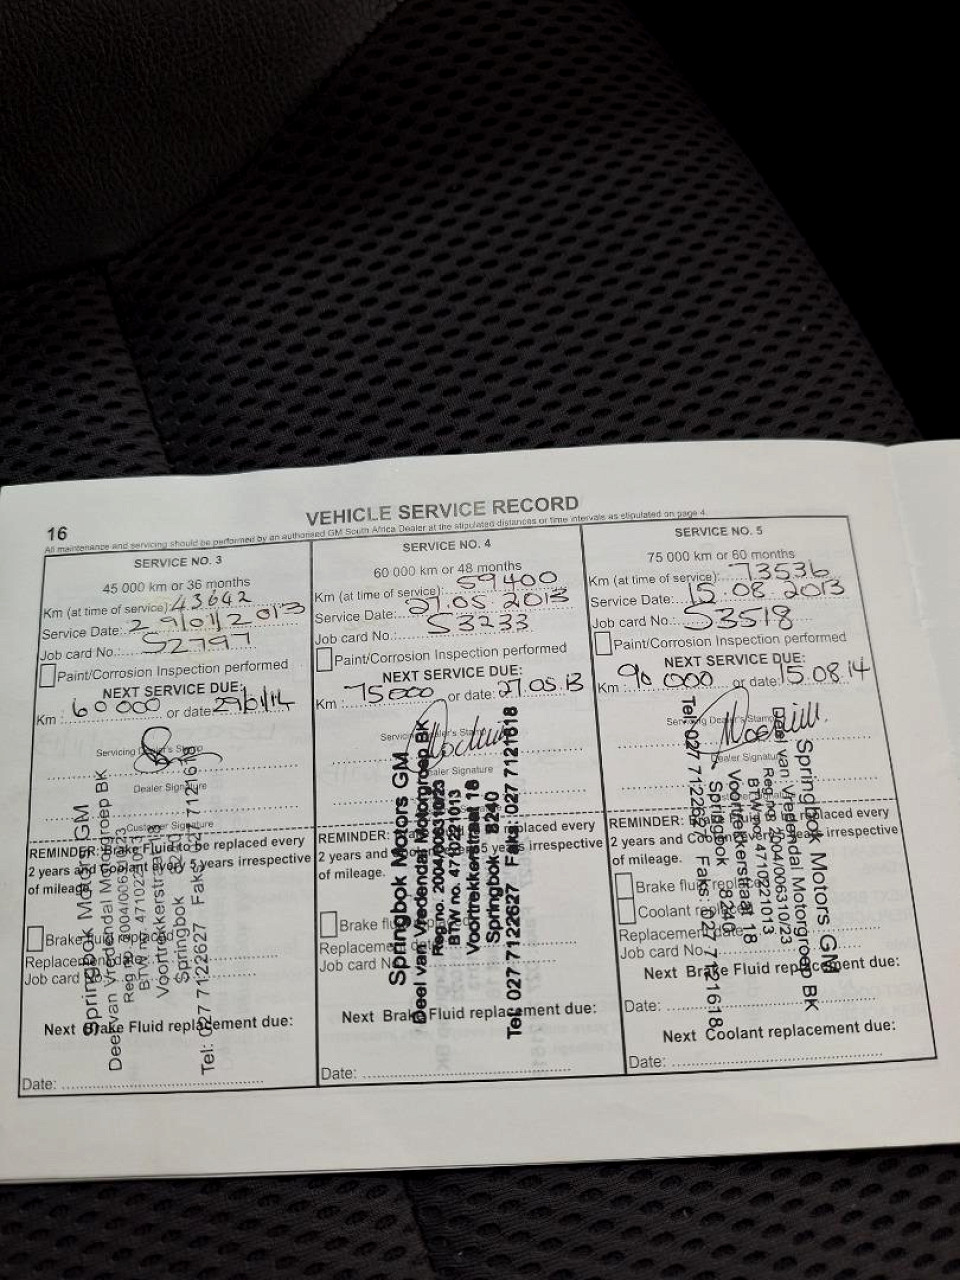 16
VEHICLE SERVICE RECORD
All maintenance and servicing should be performed by an authorised GM South Africa Dealer at the stipulated distances or time intervals as stipulated on page 4.
SERVICE NO. 3
45 000 km or 36 months
Km (at time of service): 43642
Service Date: 29/01/2013
Job card No.: 52797
Paint/Corrosion Inspection performed
NEXT SERVICE DUE:
Km : 60 000 or date: 29/01/14
Servicing Dealer's Stamp
Dealer Signature
Customer Signature
REMINDER: Brake Fluid to be replaced every
2 years and Coolant every 5 years irrespective
of mileage.
Brake fluid replaced
Replacement date
Job card No
Next Brake Fluid replacement due:
Date:
Springbok Motors GM
Deel van Vredendal Motorgroep BK
Reg no. 2004/006310/23
BTW no. 4710221013
Voortrekkerstraat 18
Springbok 8240
Tel: 027 7122627 Faks: 027 7121618
SERVICE NO. 4
60 000 km or 48 months
Km (at time of service): 59400
Service Date: 27.05.2013
Job card No.: 53233
Paint/Corrosion Inspection performed
NEXT SERVICE DUE:
Km : 75000 or date: 27.05.13
Servicing Dealer's Stamp
Dealer Signature
REMINDER: replaced every
2 years and 5 years irrespective
of mileage.
Brake fluid replaced
Replacement date
Job card No
Next Brake Fluid replacement due:
Date:
Springbok Motors GM
Deel van Vredendal Motorgroep BK
Reg no. 2004/006310/23
BTW no. 4710221013
Voortrekkerstraat 18
Springbok 8240
Tel: 027 7122627 Faks: 027 7121618
SERVICE NO. 5
75 000 km or 60 months
Km (at time of service): 73536
Service Date: 15.08.2013
Job card No.: 53518
Paint/Corrosion Inspection performed
NEXT SERVICE DUE:
Km : 90 000 or date: 15.08.14
Servicing Dealer's Stamp
Dealer Signature
REMINDER: replaced every
2 years and Coolant every 5 years irrespective
of mileage.
Brake fluid replaced
Coolant replaced
Replacement date
Job card No
Next Brake Fluid replacement due:
Date:
Next Coolant replacement due:
Date:
Springbok Motors GM
Deel van Vredendal Motorgroep BK
Reg no. 2004/006310/23
BTW no. 4710221013
Voortrekkerstraat 18
Springbok 8240
Tel: 027 7122627 Faks: 027 7121618